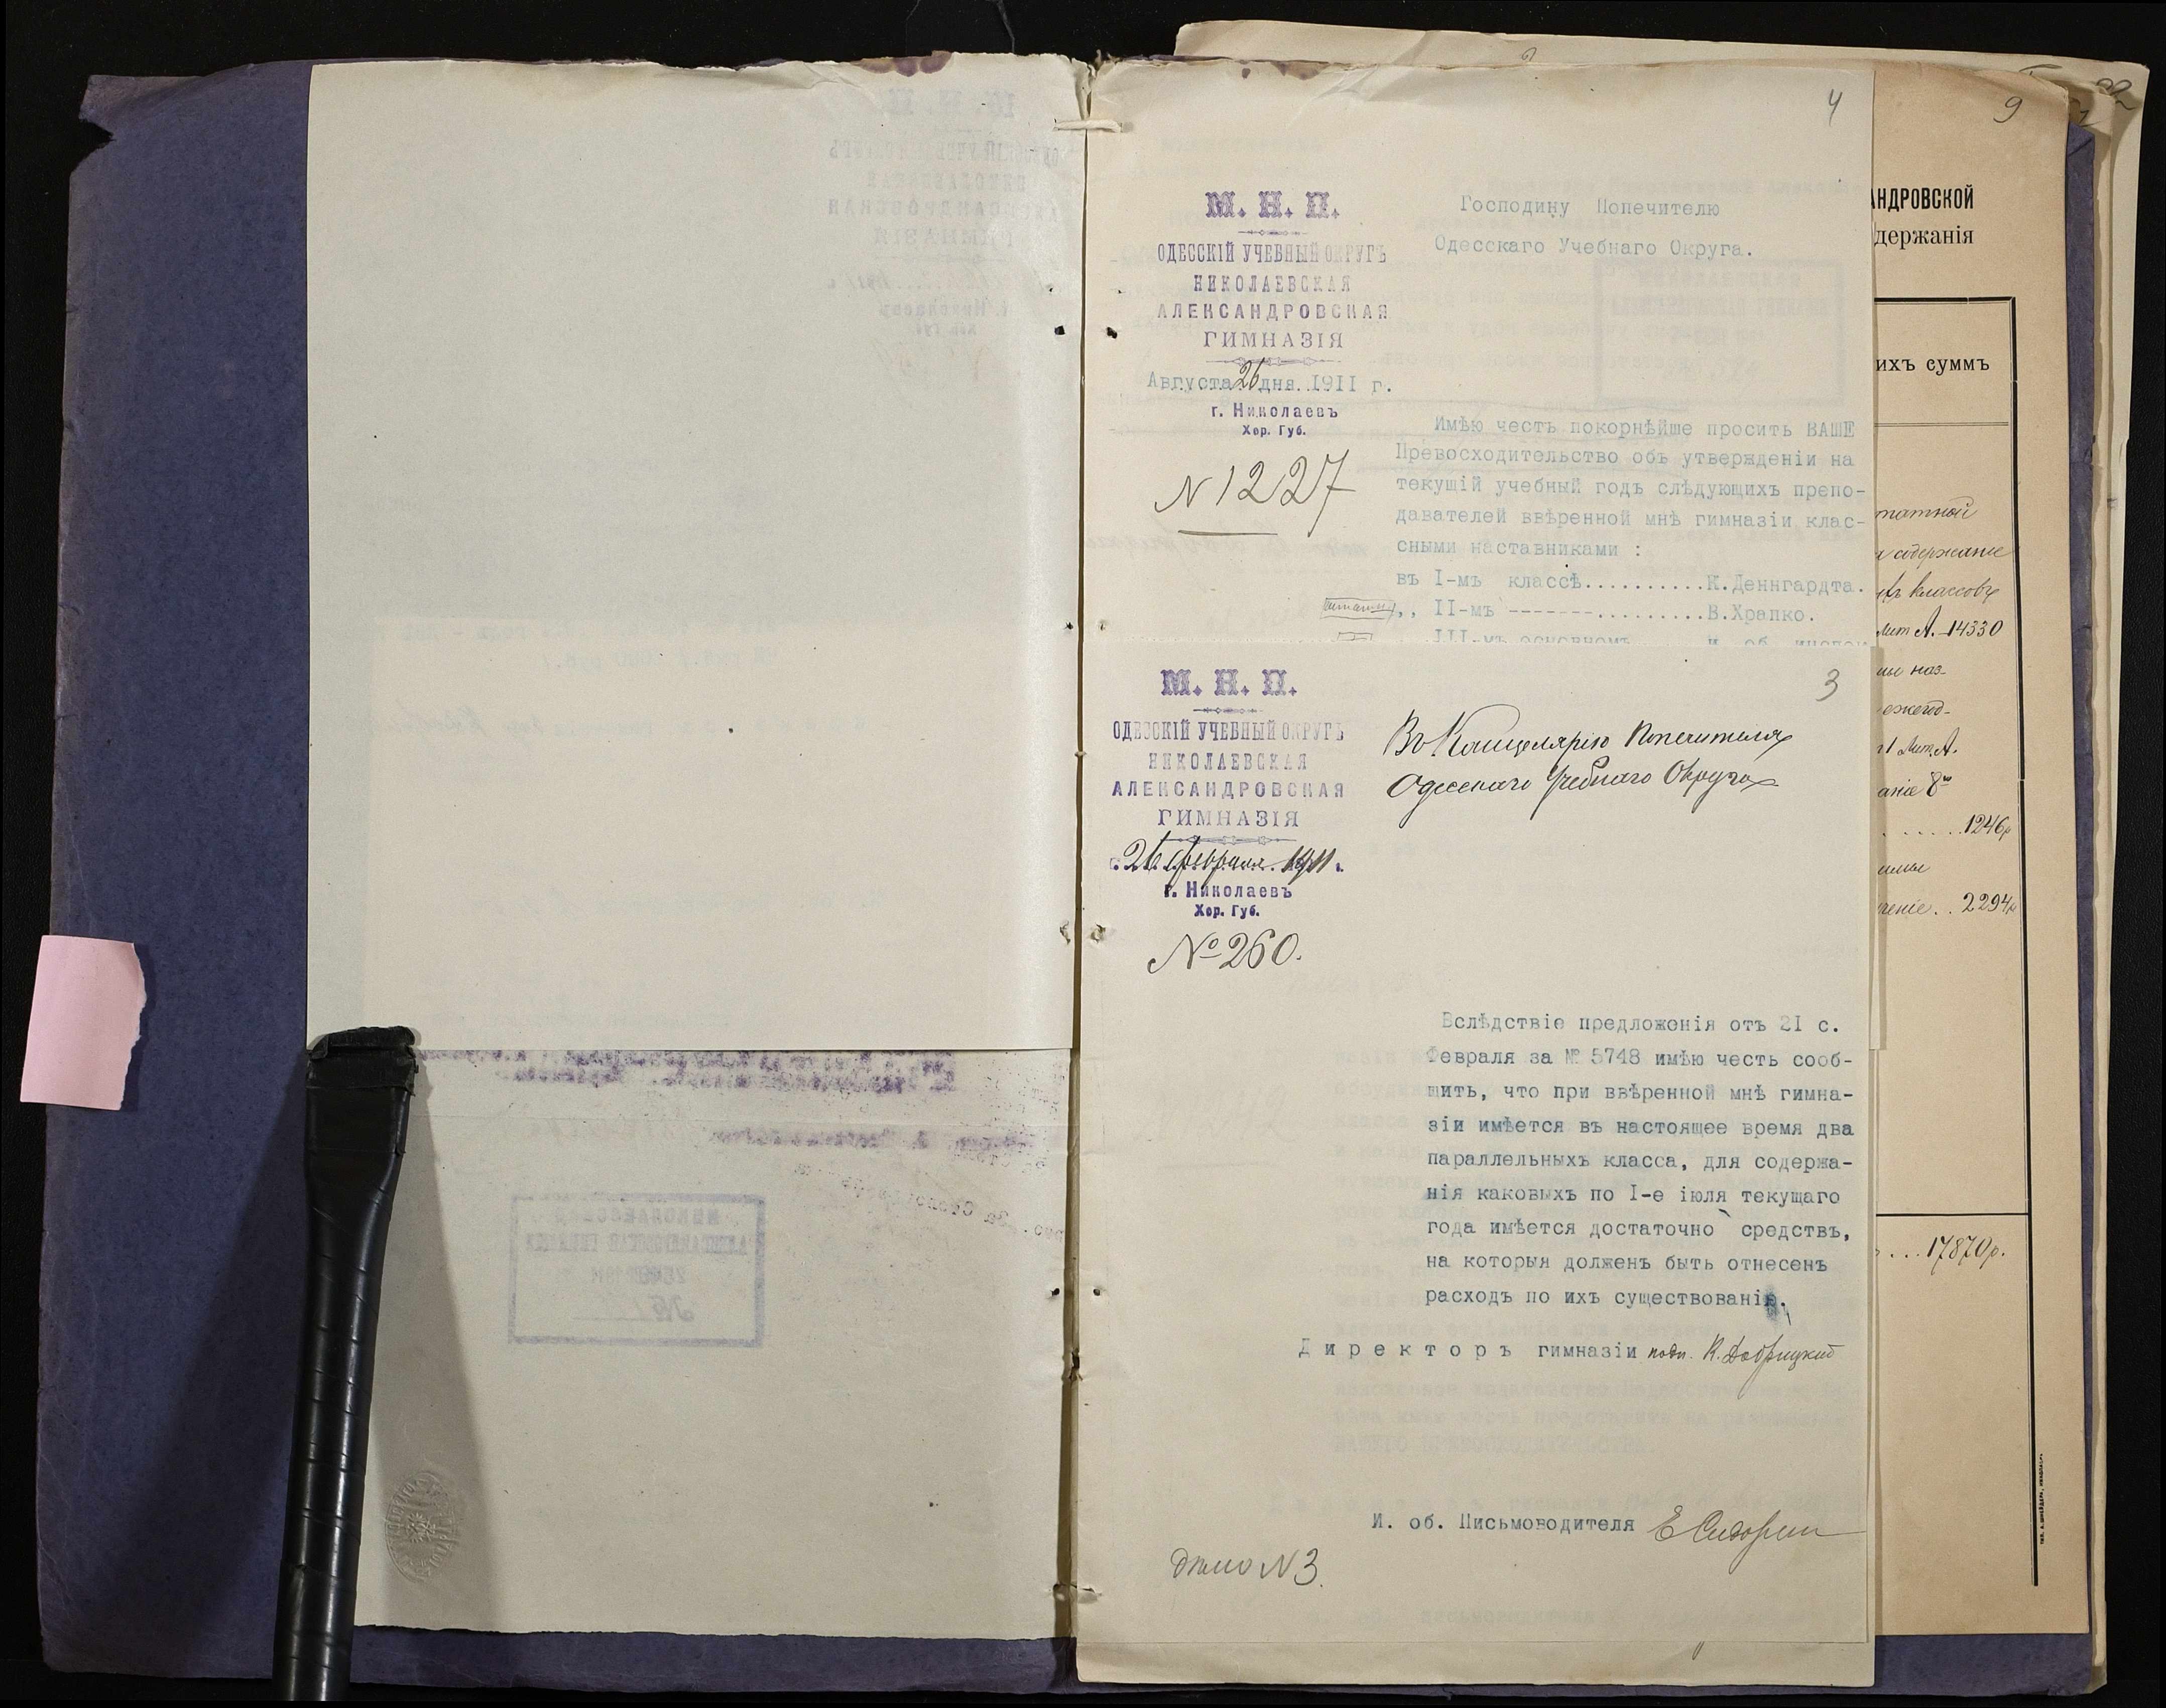 4
М. Н. П.
ОДЕССКІЙ УЧЕБНЫЙ ОКРУГЪ
НИКОЛАЕВСКАЯ
АЛЕКСАНДРОВСКАЯ
ГИМНАЗІЯ
Августа 26 дня 1911 г.
г. Николаевъ
Хер. Губ.
N 1227
Господину Попечителю
Одесскаго Учебнаго Округа.
Имѣю честь покорнѣйше просить ВАШЕ
Превосходительство объ утвержденіи на
текущій учебный годъ слѣдующихъ препо-
давателей ввѣренной мнѣ гимназіи клас-
сными наставниками :
въ I-мъ классѣ..........К.Деннгардта.
,, II-мъ -------.........В.Храпко.
III-мъ основномъ и. об. инспек
3
М. Н. П.
ОДЕССКІЙ УЧЕБНЫЙ ОКРУГЪ
НИКОЛАЕВСКАЯ
АЛЕКСАНДРОВСКАЯ
ГИМНАЗІЯ
26 февраля 1911 г.
г. Николаевъ
Хер. Губ.
№ 260.
Въ Канцелярію Попечителя
Одесскаго Учебнаго Округа
Вслѣдствіе предложенія отъ 2I с.
Февраля за № 5748 имѣю честь сооб-
щить, что при ввѣренной мнѣ гимна-
зіи имѣется въ настоящее время два
параллельныхъ класса, для содержа-
нія каковыхъ по I-е іюля текущаго
года имѣется достаточно средствъ,
на которыя долженъ быть отнесенъ
расходъ по ихъ существованію.
Директоръ гимназіи подп. К. Добрицкій
И. об. Письмоводителя Е Сидорин
Дѣло N 3.
9
АНДРОВСКОЙ
держанія
ихъ суммъ
татной
содержание
классовъ
Лит А. - 14330
наз-
ежегод-
Лит. А.
аніе 8
1246р
ченіе . . 2294р
. . . 17870р.